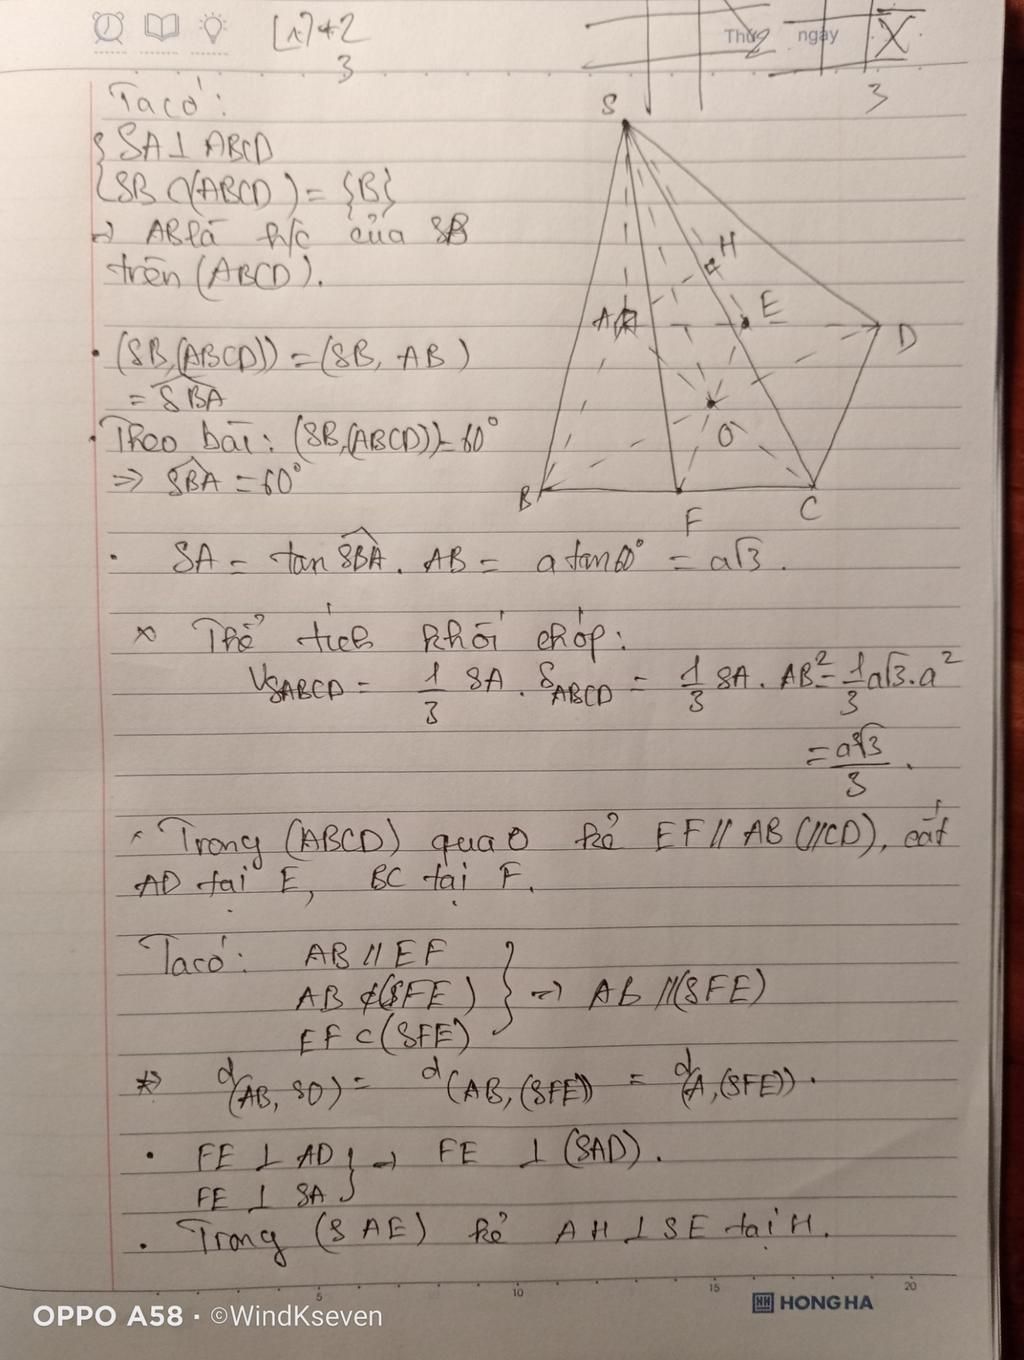 [1]+2
3
Thứ 2 ngày X
3
Ta có:
SA ⊥ ABCD
SB ∩ (ABCD) = {B}
→ AB là h/c của SB
trên (ABCD).
• (SB,(ABCD)) = (SB, AB)
= SBA
• Theo bài: (SB,(ABCD)) = 60°
⇒ SBA = 60°
S
H
A
E
D
O
B
F
C
• SA = tan SBA . AB = a tan60° = a√3 .
* Thể tích khối chóp:
V SABCD = 1/3 SA . S ABCD = 1/3 SA . AB² = 1/3 a√3 . a²
= a³√3/3 .
* Trong (ABCD) qua O kẻ EF // AB (//CD), cắt
AD tại E, BC tại F.
Ta có: AB // EF
AB ⊄ (SFE) } → AB // (SFE)
EF ⊂ (SFE)
⇒ d(AB, SO) = d(AB, (SFE)) = d(A, (SFE)) .
• FE ⊥ AD } → FE ⊥ (SAD) .
FE ⊥ SA
• Trong (SAE) kẻ AH ⊥ SE tại H.
5 10 15 20
HONG HA
OPPO A58 · ©WindKseven